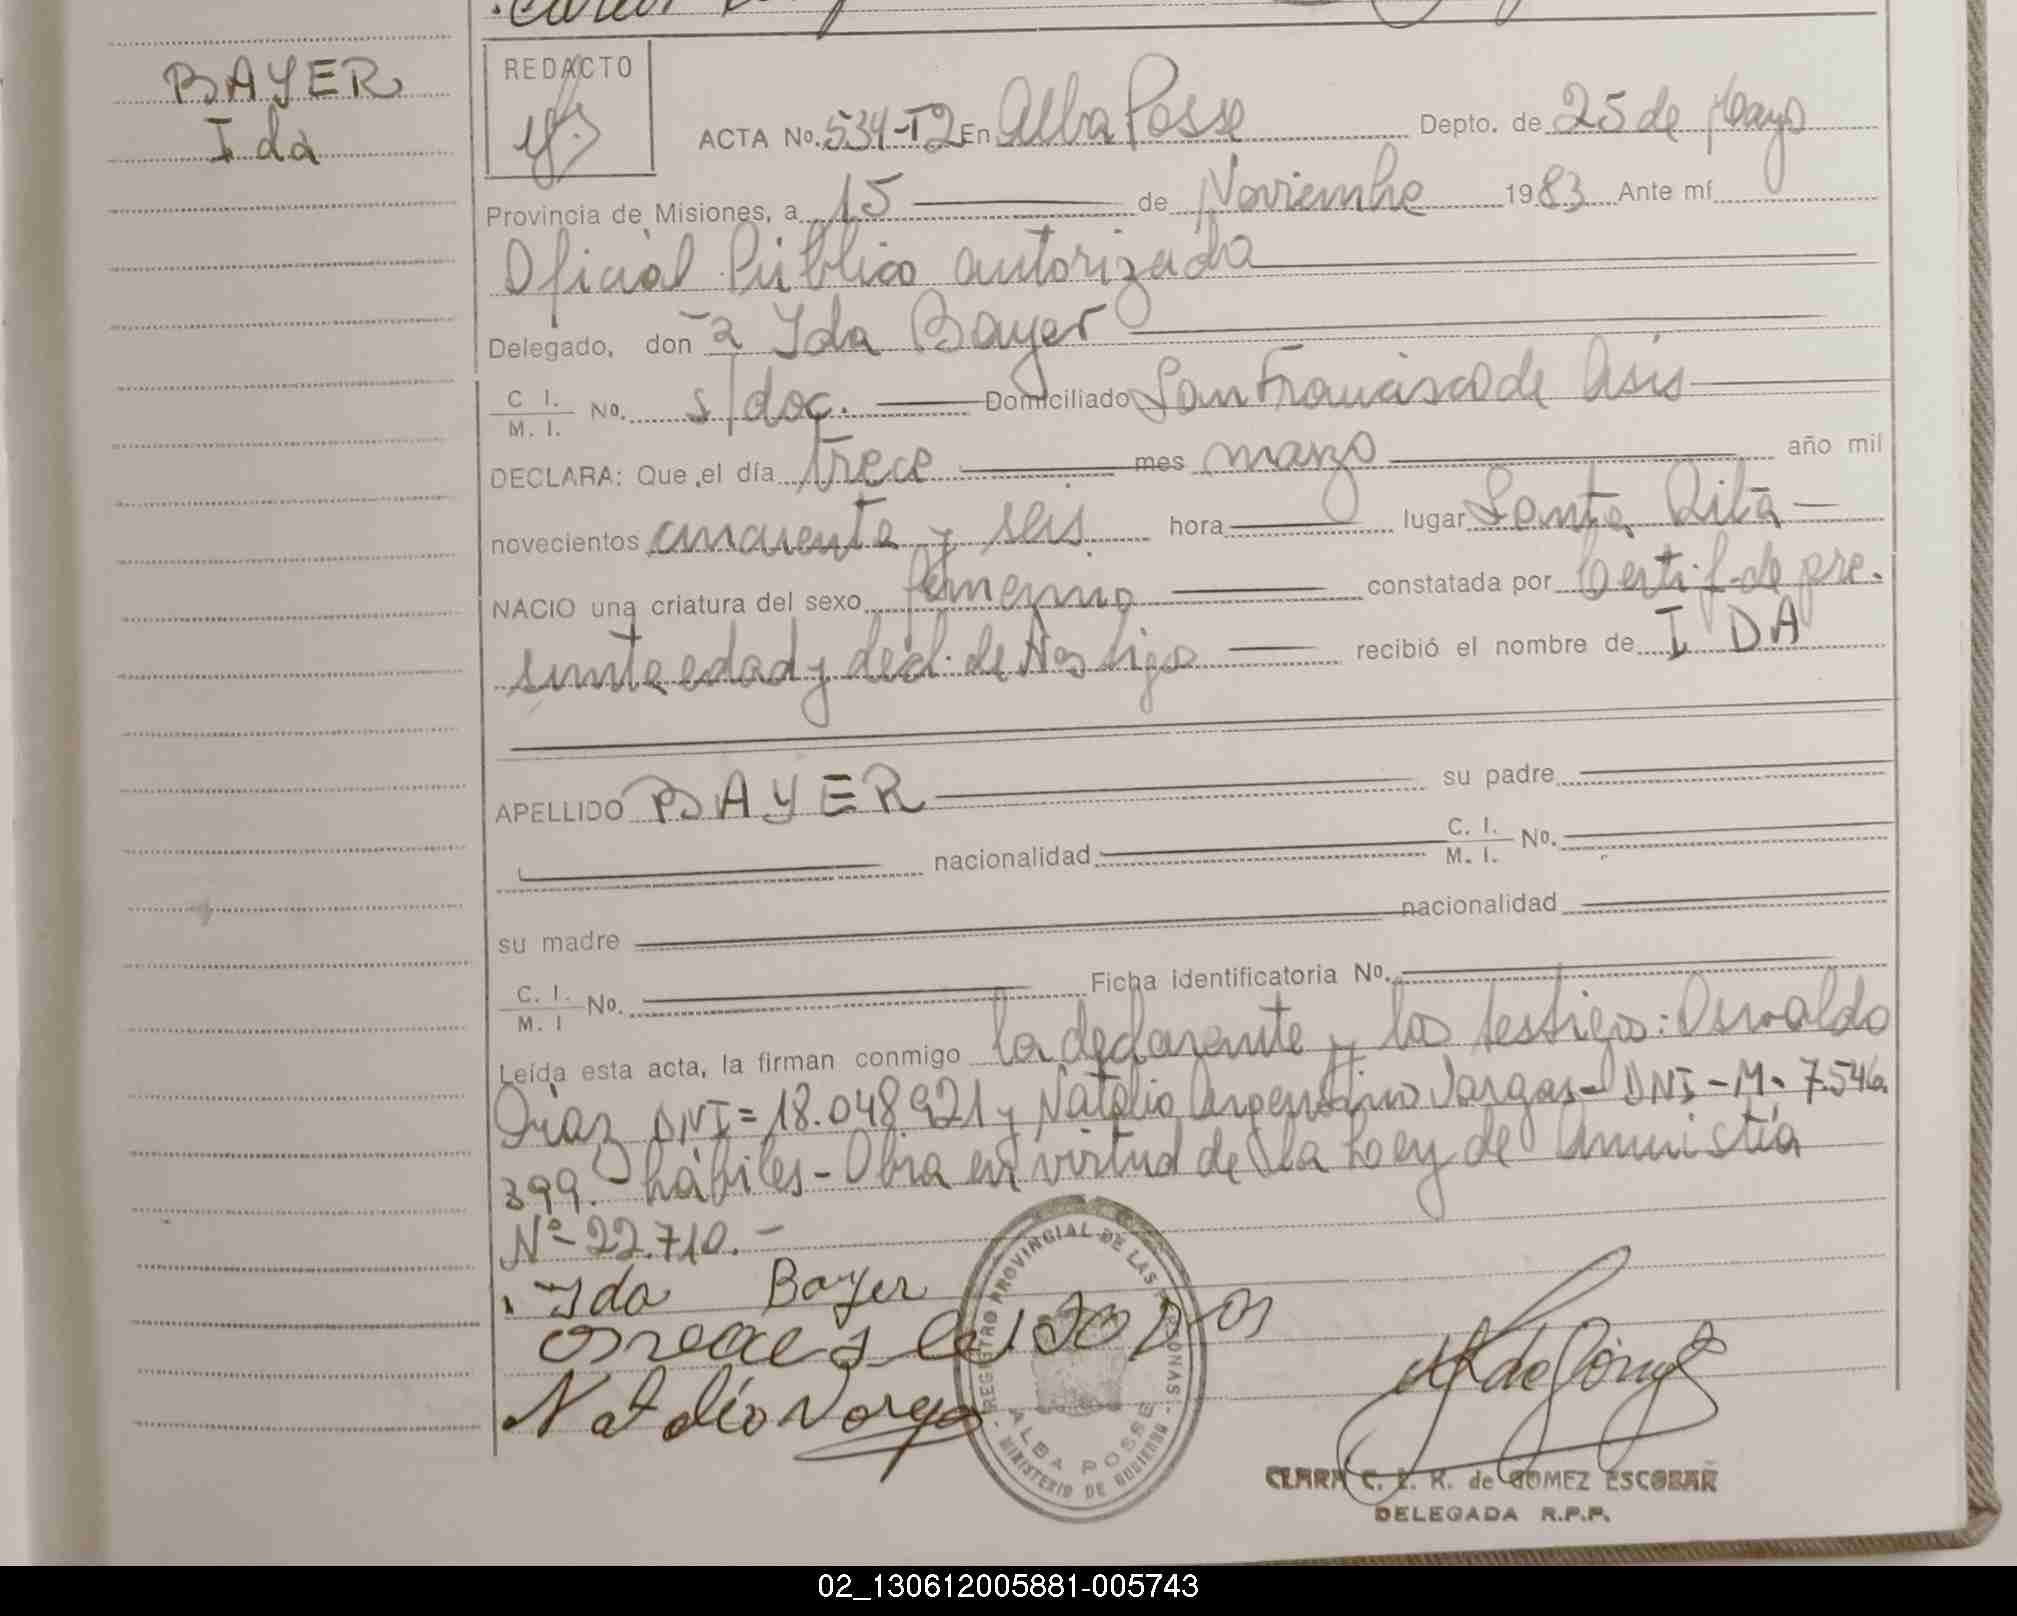 BAYER
Ida
REDACTO
ACTA No. 534-T2 En Alba Posse Depto. de 25 de Mayo
Provincia de Misiones, a 15 de Noviembre 1983 Ante mí
Oficial Público autorizada
Delegado, don -a Ida Bayer
C I. / M. I. No. s/doc. Domiciliado San Francisco de Asis
DECLARA: Que el día trece mes marzo año mil
novecientos cincuenta y seis hora lugar Santa Rita
NACIO una criatura del sexo femenino constatada por Certif. de pre-
sunta edad y decl. de testigo recibió el nombre de IDA
APELLIDO BAYER su padre
nacionalidad C. I. / M. I. No.
su madre nacionalidad
C. I. / M. I No. Ficha identificatoria No.
Leída esta acta, la firman conmigo la declarante y los testigos: Osvaldo
Díaz DNI=18.048.921 y Natalio Argentino Vargas- DNI-M- 7.546.
399. hábiles- Obra en virtud de la Ley de Amnistía
Nº 22.710.-
Ida Bayer
Natalio Vargas
REGISTRO PROVINCIAL DE LAS PERSONAS
ALBA POSSE
MINISTERIO DE GOBIERNO
CLARA C. L. R. de GOMEZ ESCOBAR
DELEGADA R.P.P.
02_130612005881-005743